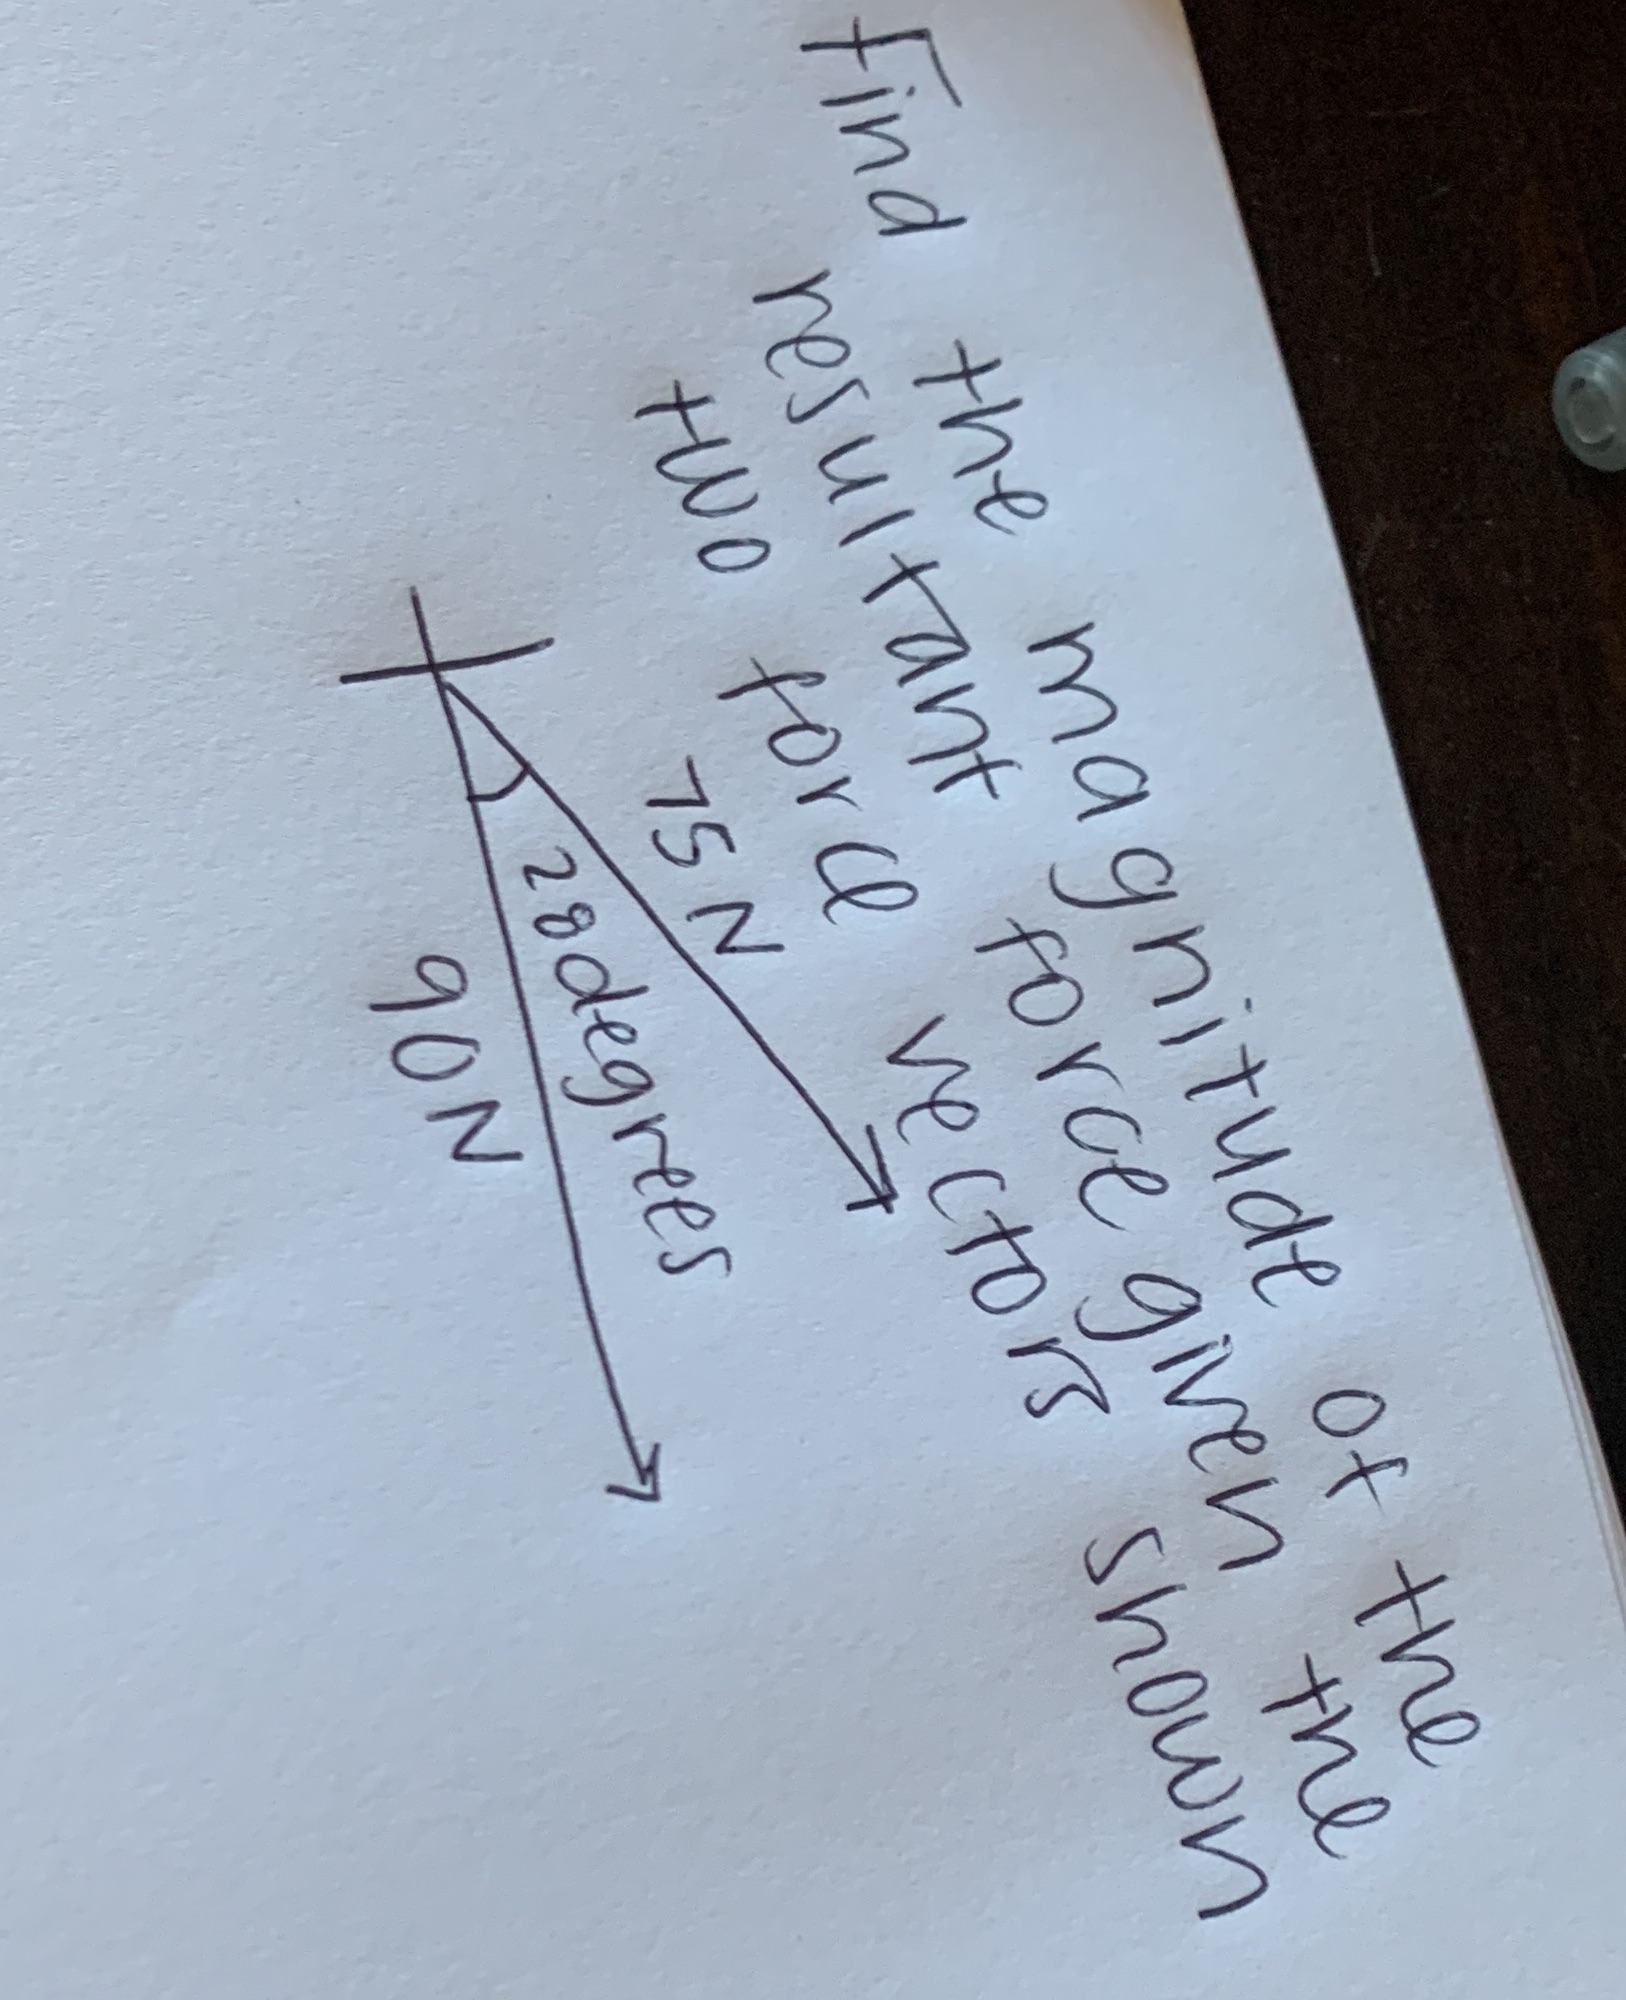 Find the magnitude of the
resultant force given the
two force vectors shown
75 N
28 degrees
90 N